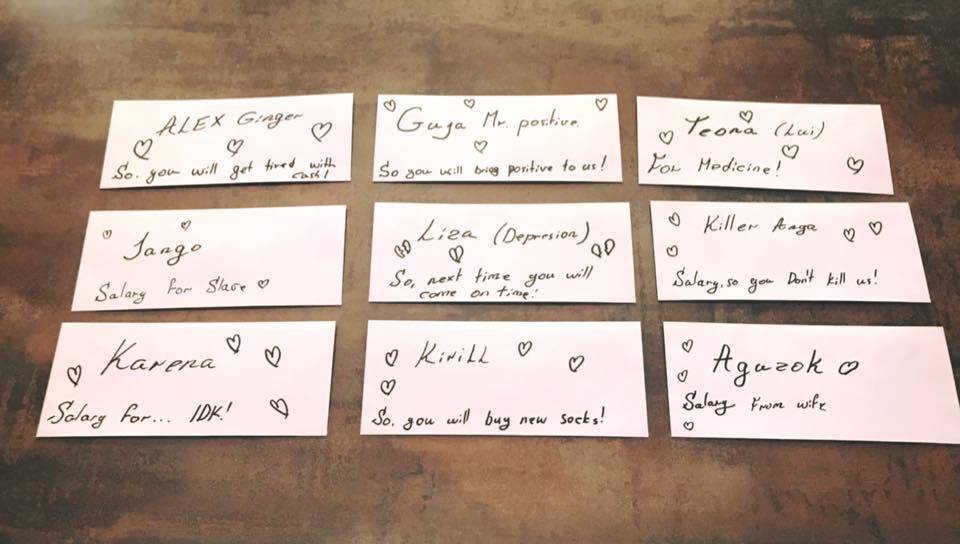 ALEX Ginger
So. you will get tired with
cash!
Guga Mr. positive.
So you will bring positive to us!
Teona (Lui)
For Medicine!
Tango
Salary for Slave
Liza (Depresion)
So, next time you will
come on time!
Killer Anga
Salary, so you Don't kill us!
Karena
Salary for... IDK!
Kirill
So, you will buy new socks!
Aguzok
Salary From wife